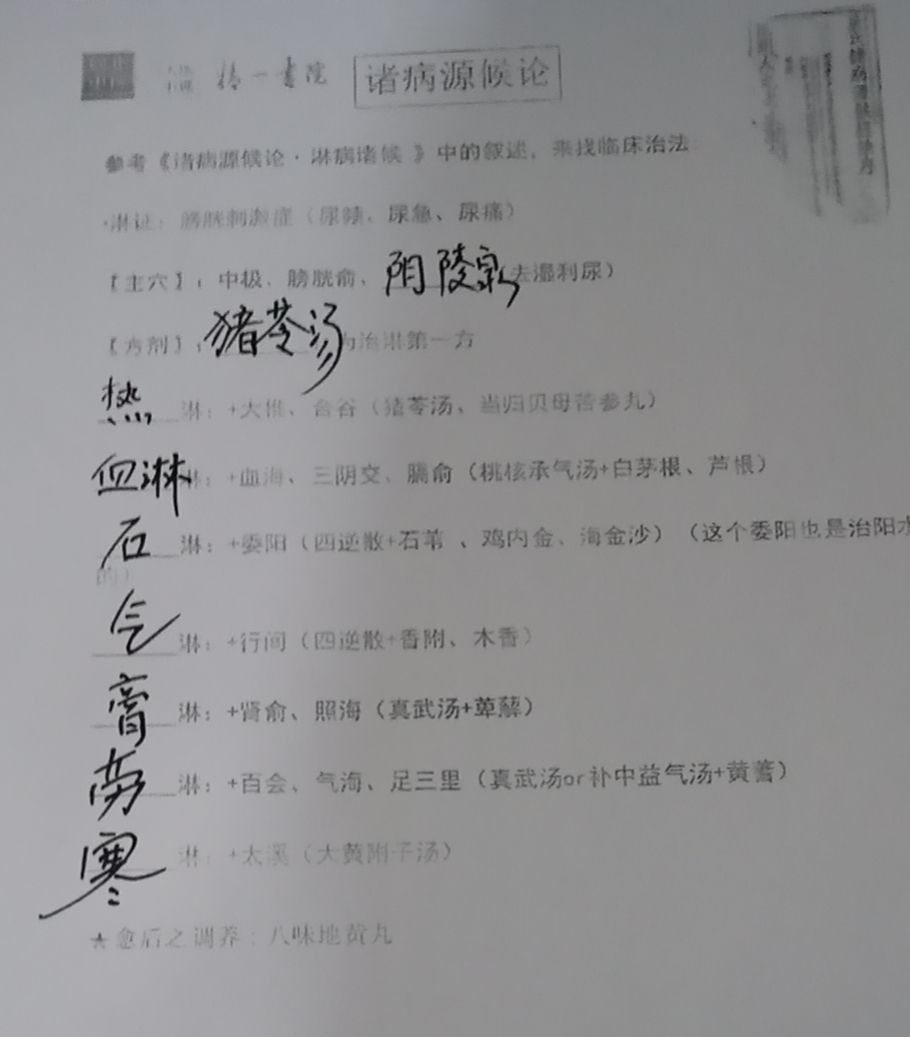 书院 诸病源候论
参考《诸病源候论·淋病诸候 》中的叙述，来找临床治法
·淋证：膀胱刺激症（尿频、尿急、尿痛）
【主穴】：中极、膀胱俞、阴陵泉去湿利尿）
【方剂】：猪苓汤为治淋第一方
热淋：+大椎、合谷（猪苓汤、当归贝母苦参丸）
血淋淋：+血海、三阴交、膈俞（桃核承气汤+白茅根、芦根）
石淋：+委阳（四逆散+石苇 、鸡内金、海金沙）（这个委阳也是治阳水
的）
气淋：+行间（四逆散+香附、木香）
膏淋：+肾俞、照海（真武汤+萆薢）
劳淋：+百会、气海、足三里（真武汤or补中益气汤+黄蓍）
寒淋：+太溪（大黄附子汤）
★愈后之调养：八味地黄丸